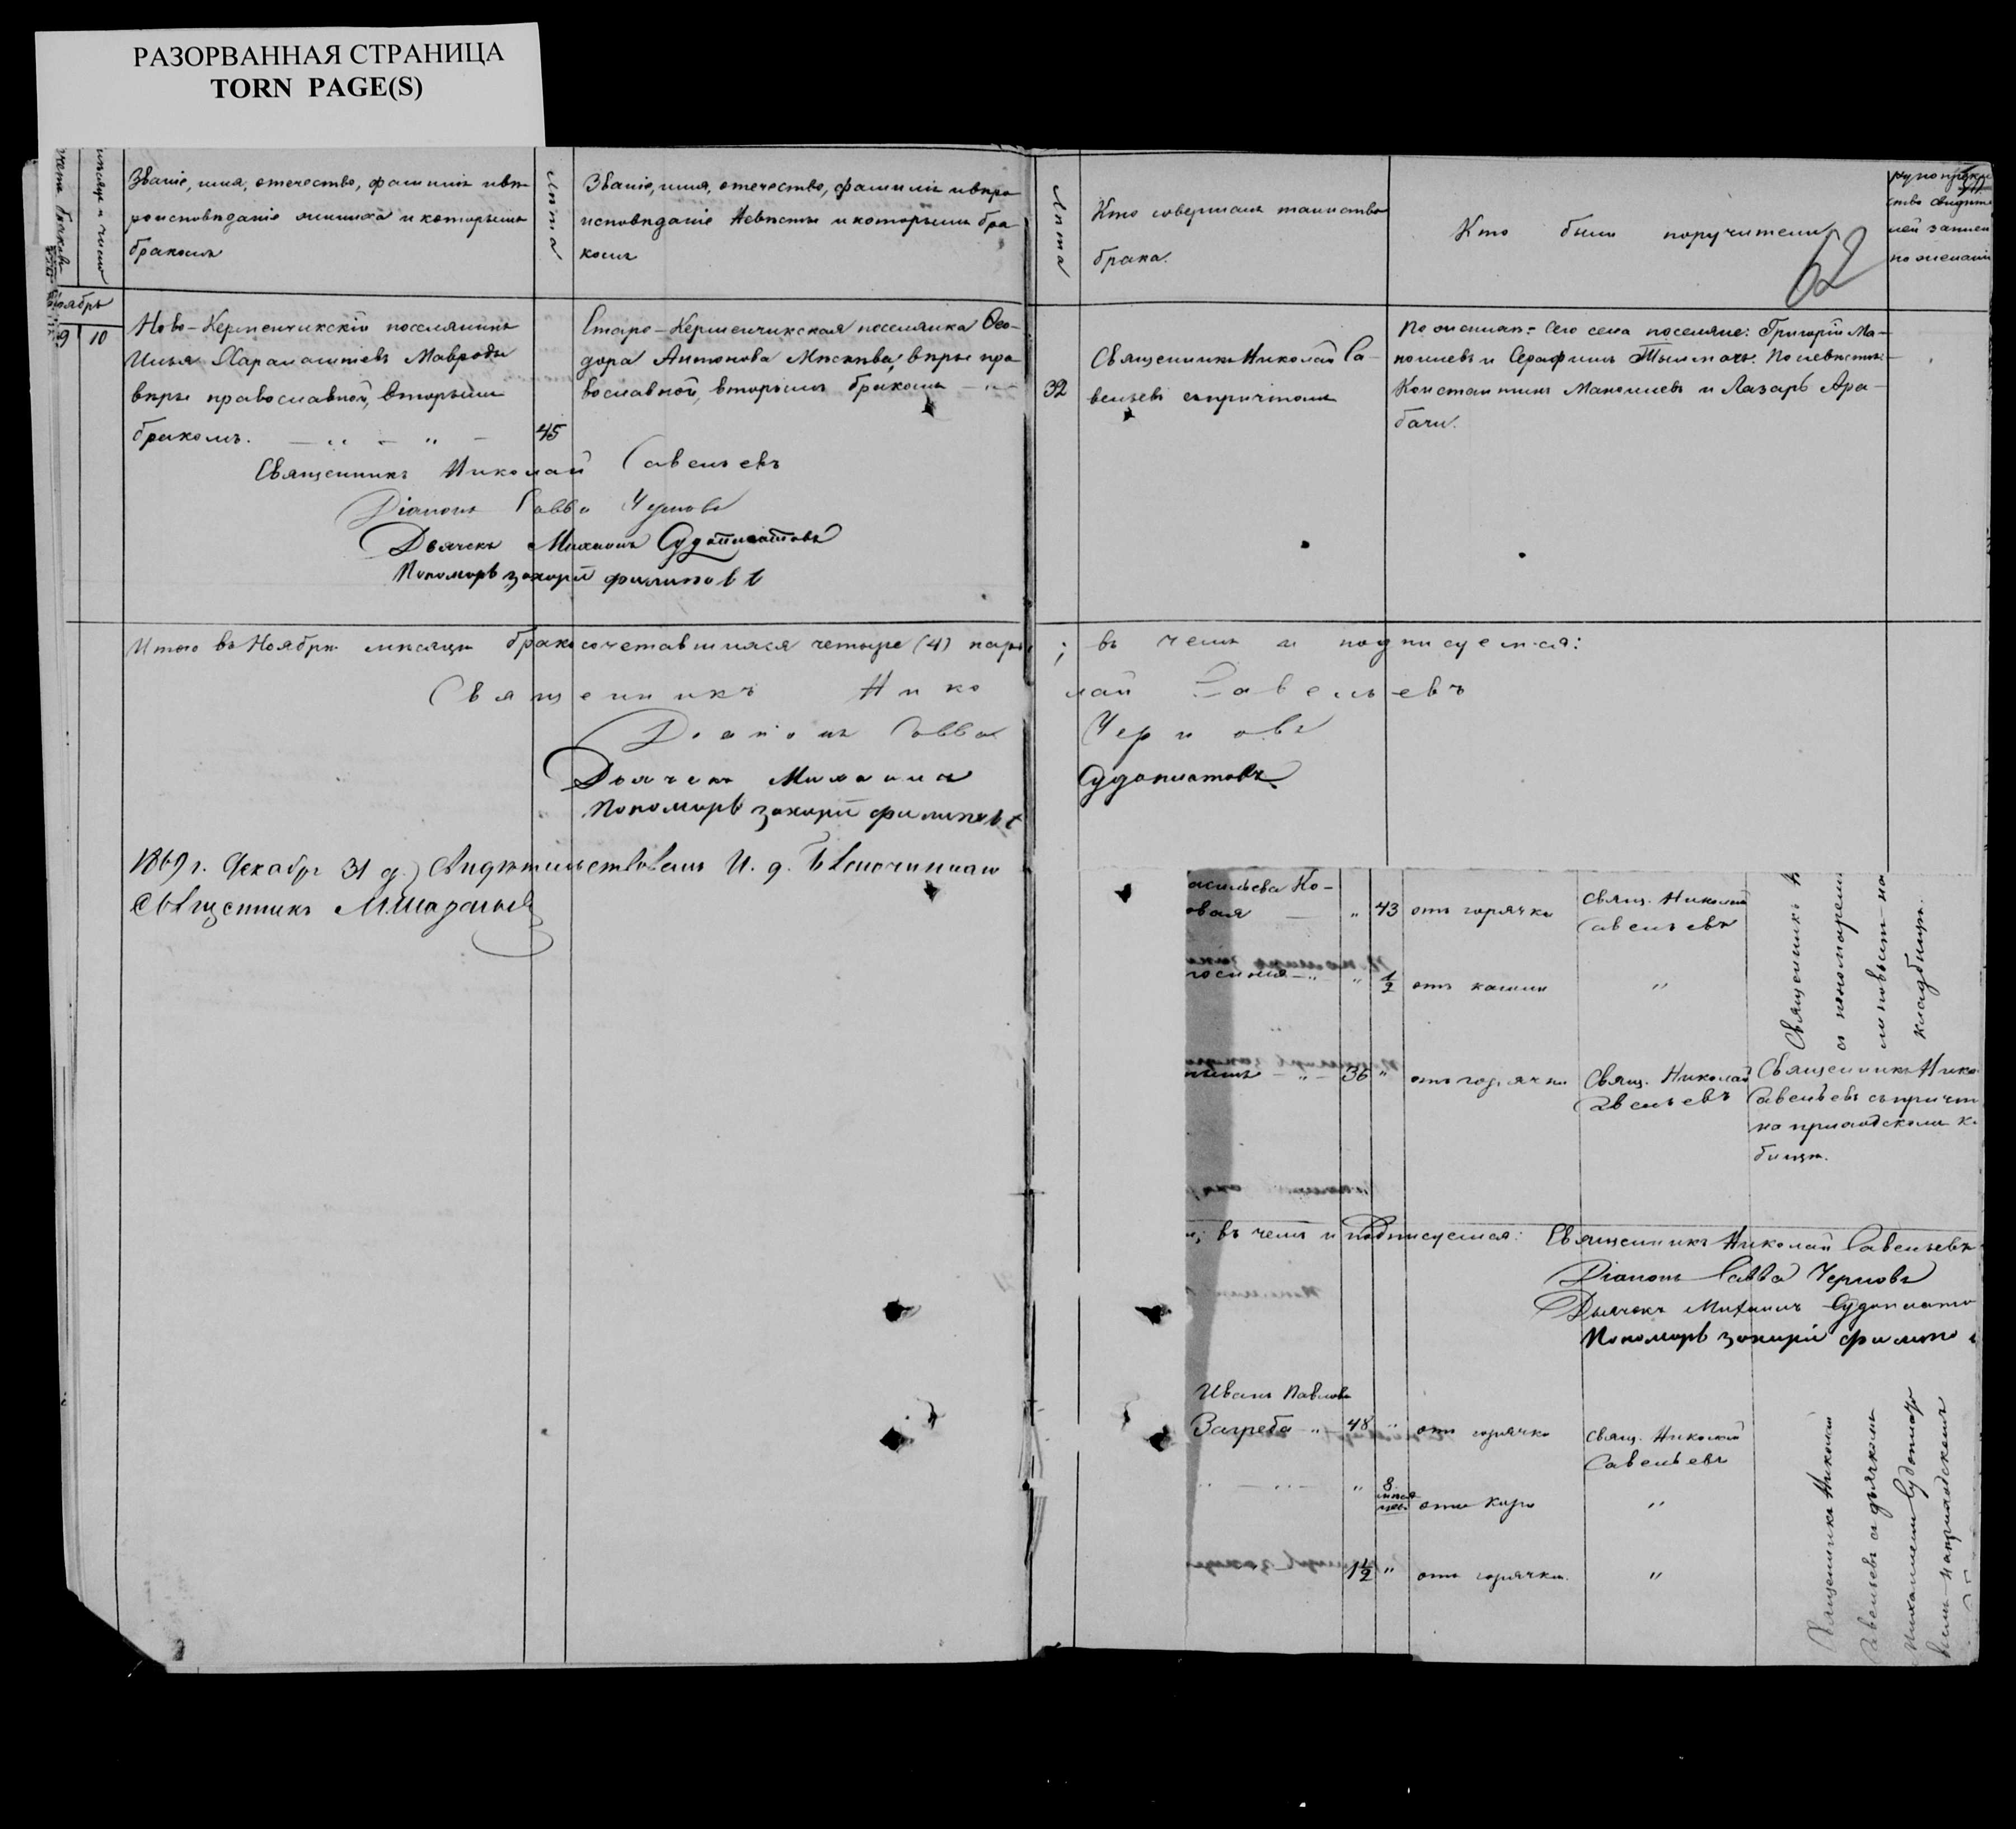 РАЗОРВАННАЯ СТРАНИЦА
TORN PAGE(S)
Званіе, имя, отечество, фамилія и вѣ-
роисповѣданіе жениха и которымъ
бракомъ
Лѣта
Званіе, имя, отечество, фамилія и вѣро
исповѣданіе невѣсты и которымъ бра
комъ
Лѣта
Кто совершалъ таинство
брака.
Кто были поручители
62
9 10
Ново-Керменчикскій поселянинъ
Илья Харлампіевъ Мавроди
вѣры православной, вторымъ
бракомъ. 45
Старо-Керменчикская поселянка Ѳео-
дора Антонова вѣры пра
вославной, вторымъ бракомъ
32
Священникъ Николай Са-
вельевъ съ причтомъ
По женихѣ: сего села поселяне: Григорій Ма-
и Серафимъ По невѣстѣ:
Константинъ и Лазарь Ара-
бачи.
Священникъ Николай Савельевъ
Діаконъ Савва Черновъ
Дьячекъ Михаилъ Судоплатовъ
Пономарь Захарій Филиповъ
Итого въ Ноябрѣ мѣсяцѣ бракосочетавшихся четыре (4) пары; въ чемъ и подписуемся:
Священникъ Николай Савельевъ
Діаконъ Савва Черновъ
Дьячекъ Михаилъ Судоплатовъ
Пономарь Захарій Филиповъ
1869 г. Декабря 31 д. Свидѣтельствовалъ И. д. Благочиннаго
Священникъ
43 отъ горячки Свящ. Николай
Савельевъ
1/2 отъ кашля "
36 " отъ горячки Свящ. Николай
Савельевъ
Священникъ Нико
Савельевъ съ причт
на приходскомъ к
бищѣ.
Священникъ
съ пономаремъ
кладбищѣ.
въ чемъ и подписуемся: Священникъ Николай Савельевъ
Діаконъ Савва Черновъ
Дьячекъ Михаилъ Судоплато
Пономарь Захарій Филипо
Иванъ Павловъ
Загреба " 48 " отъ горячки Свящ. Николай
Савельевъ
" 8 мѣся
цев. отъ кори "
1 1/2 " отъ горячки. "
Священникъ Николай
Савельевъ съ дьячкомъ
Михаиломъ Судоплато
вымъ на приходскомъ